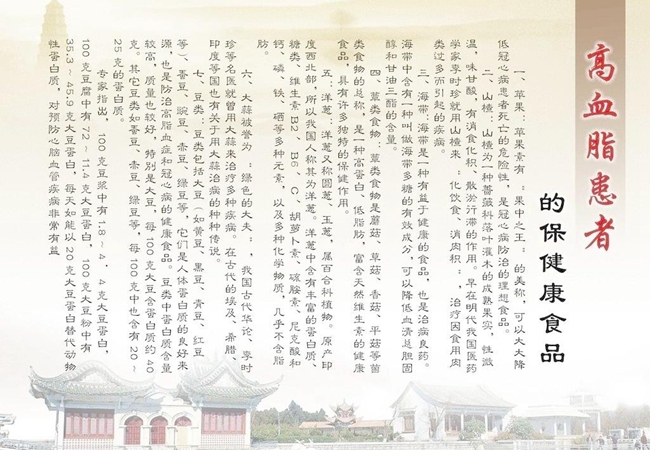 高血脂患者
的保健康食品
一、苹果:苹果素有:果中之王:的美称,可以大大降
低冠心病患者死亡的危险性,是冠心病防治的理想食品。
二、山楂,山楂为一种蔷薇科落叶灌木的成熟果实,性微
温,味甘酸,有消食化积、散淤行滞的作用。早在明代我国医药
学家李时珍就用山楂来:化饮食、消肉积:,治疗因食用肉
类过多而引起的疾病。
三、海带:海带是一种有益于健康的食品,也是治病良药。
海带中含有一种叫做海带多糖的有效成分,可以降低血清总胆固
醇和甘油三酯的含量。
四、蕈类食物:蕈类食物是蘑菇、草菇、香菇、平菇等菌
类食物的总称,是一种高蛋白、低脂肪、富含天然维生素的健康
食品,具有许多独特的保健作用。
五:洋葱:洋葱又称圆葱、玉葱,属百合科植物。原产印
度西北部,所以我国人称其为洋葱。洋葱中含有丰富的蛋白质、
糖类、维生素B2、B6、C、胡萝卜素、硫胺素、尼克酸和
钙、磷、铁、硒等多种元素,以及多种化学物质,几乎不含脂
肪。
六:大蒜被誉为:绿色的大夫:,我国古代华论、李时
珍等名医就曾用大蒜来治疗多种疾病。在古代的埃及、希腊、
印度等国也有关于用大蒜治病的种种传说。
七、豆类:豆类包括大豆(如黄豆、黑豆、青豆、红豆
等)、蚕豆、豌豆、赤豆、绿豆等,它们是人体蛋白质的良好来
源,也是防治高脂血症和冠心病的健康食品。豆类中蛋白质含量
较高,质量也较好,特别是大豆,每100克大豆含蛋白质约40
克。其它豆类如蚕豆、赤豆、绿豆等,每100克中也含有20~
25克的蛋白质。
专家指出,100克豆浆中有1.8~4.4克大豆蛋白,
100克豆腐中有7.2~11.4克大豆蛋白,100克大豆粉中有
35.3~45.9克大豆蛋白,每天如能以20克大豆蛋白替代动物
性蛋白质,对预防心脑血管疾病非常有益